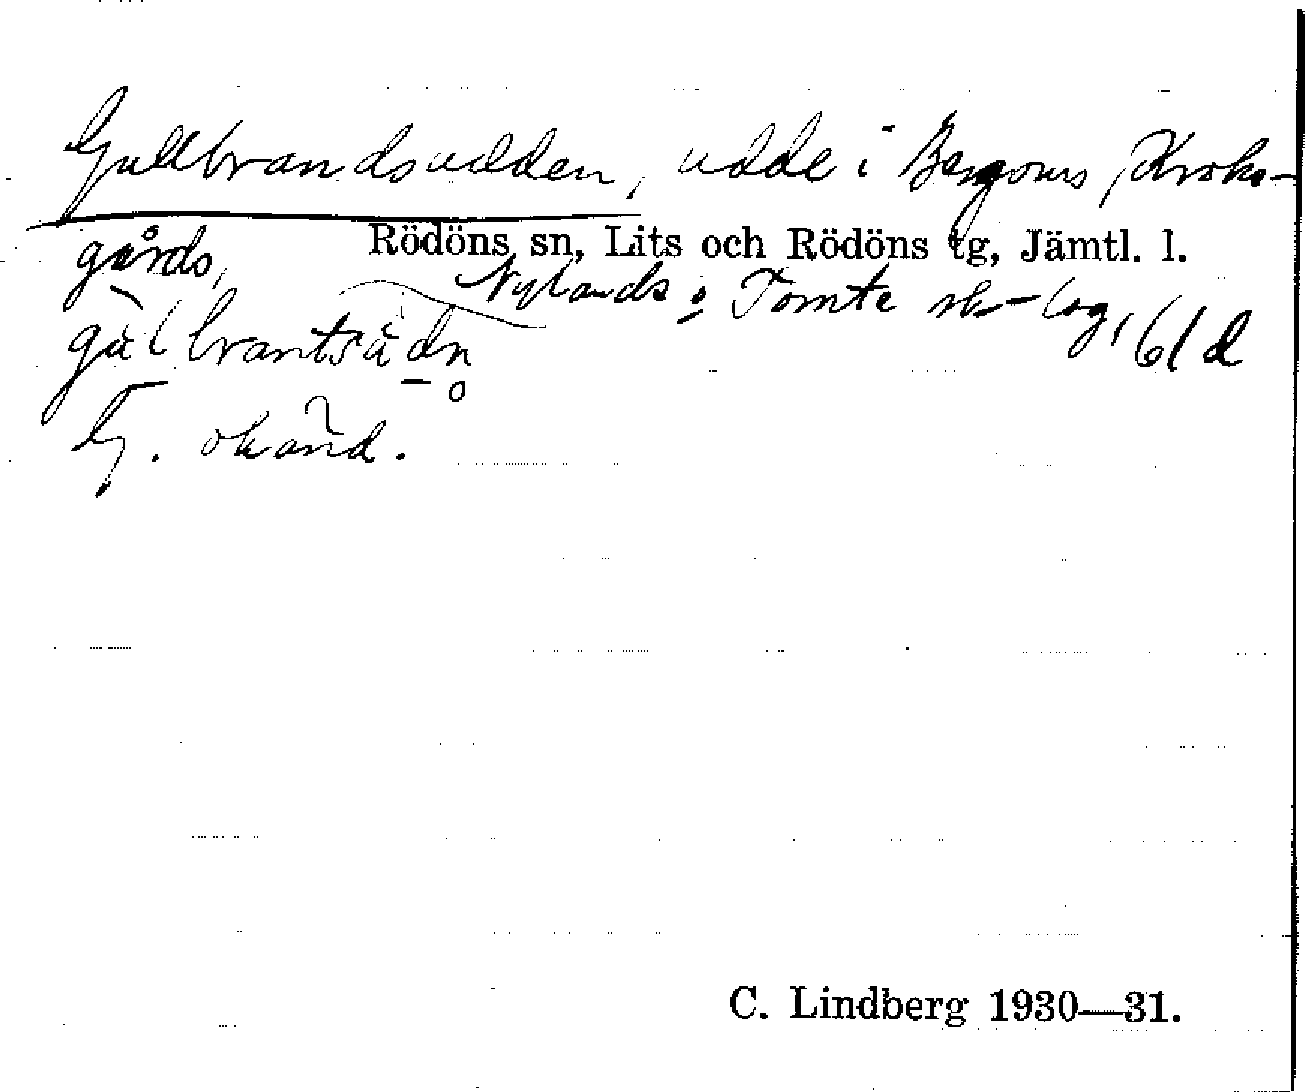 Gullbrandsudden, udde i Bergoms, Kroks-
gårds,
Rödöns sn, Lits och Rödöns tg, Jämtl. l.
Nylands o Tomte sk-lag, 61 d
gulbrantsudn
G. okänd.
C. Lindberg 1930—31.